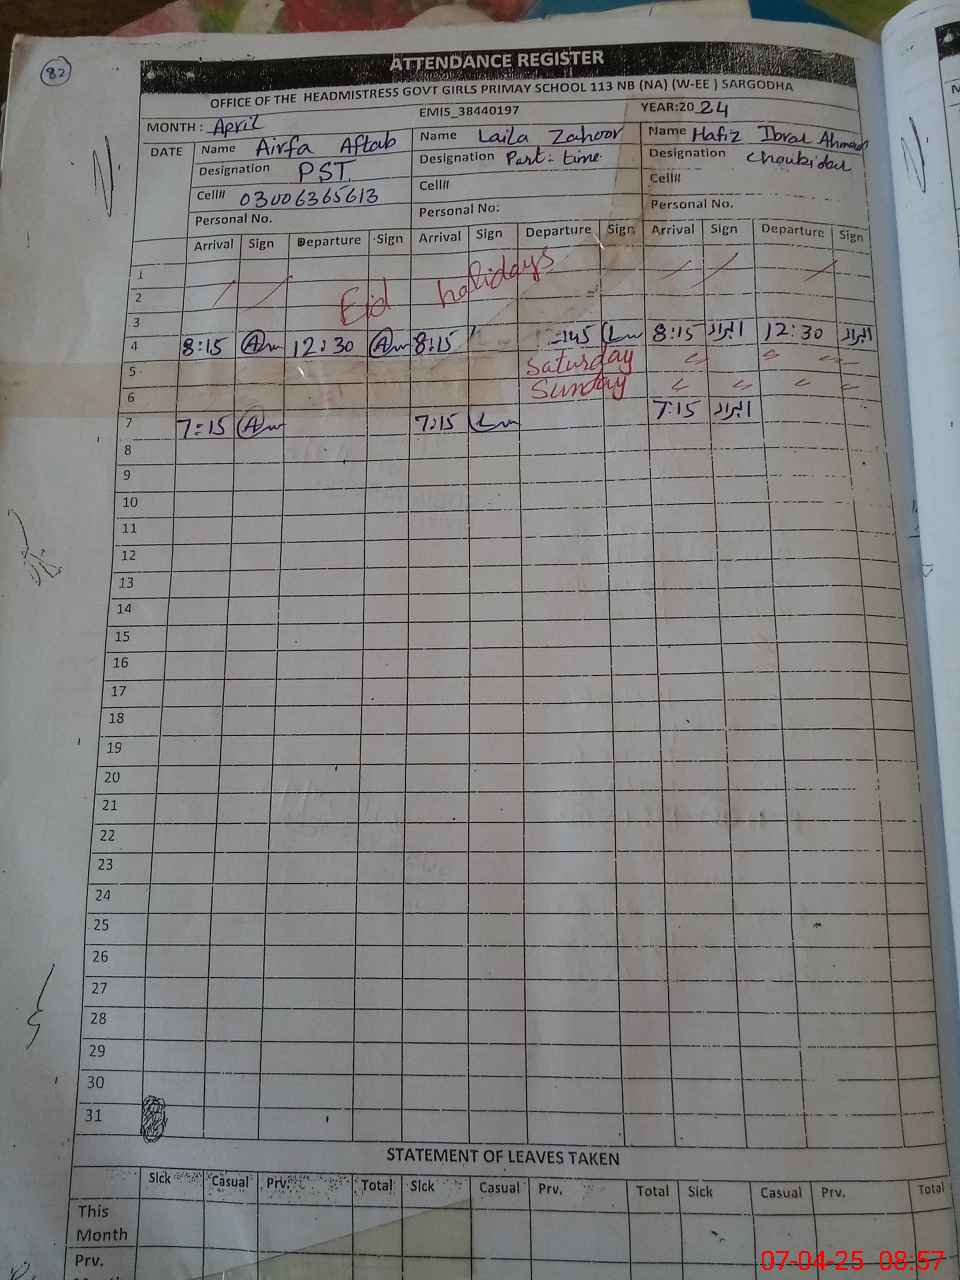 82
ATTENDANCE REGISTER
OFFICE OF THE HEADMISTRESS GOVT GIRLS PRIMAY SCHOOL 113 NB (NA) (W-EE ) SARGODHA
MONTH : April EMIS_38440197 YEAR:20 24
DATE Name Airfa Aftab Name Laila Zahoor Name Hafiz Ibrar Ahmad
Designation PST Designation Part: time Designation Choukidar
Cell# 03006365613 Cell# Cell#
Personal No. Personal No: Personal No.
Arrival Sign Departure Sign Arrival Sign Departure Sign Arrival Sign Departure Sign
1
2 Eid holidays
3
4 8:15 12:30 8:15 8:15 ابرار 12:30 ابرار
5 Saturday
6 Sunday
7 7:15 7:15 7:15 ابرار
8
9
10
11
12
13
14
15
16
17
18
19
20
21
22
23
24
25
26
27
28
29
30
31
STATEMENT OF LEAVES TAKEN
Sick Casual Prv. Total Sick Casual Prv. Total Sick Casual Prv. Total
This
Month
Prv.
07-04-25 08:57